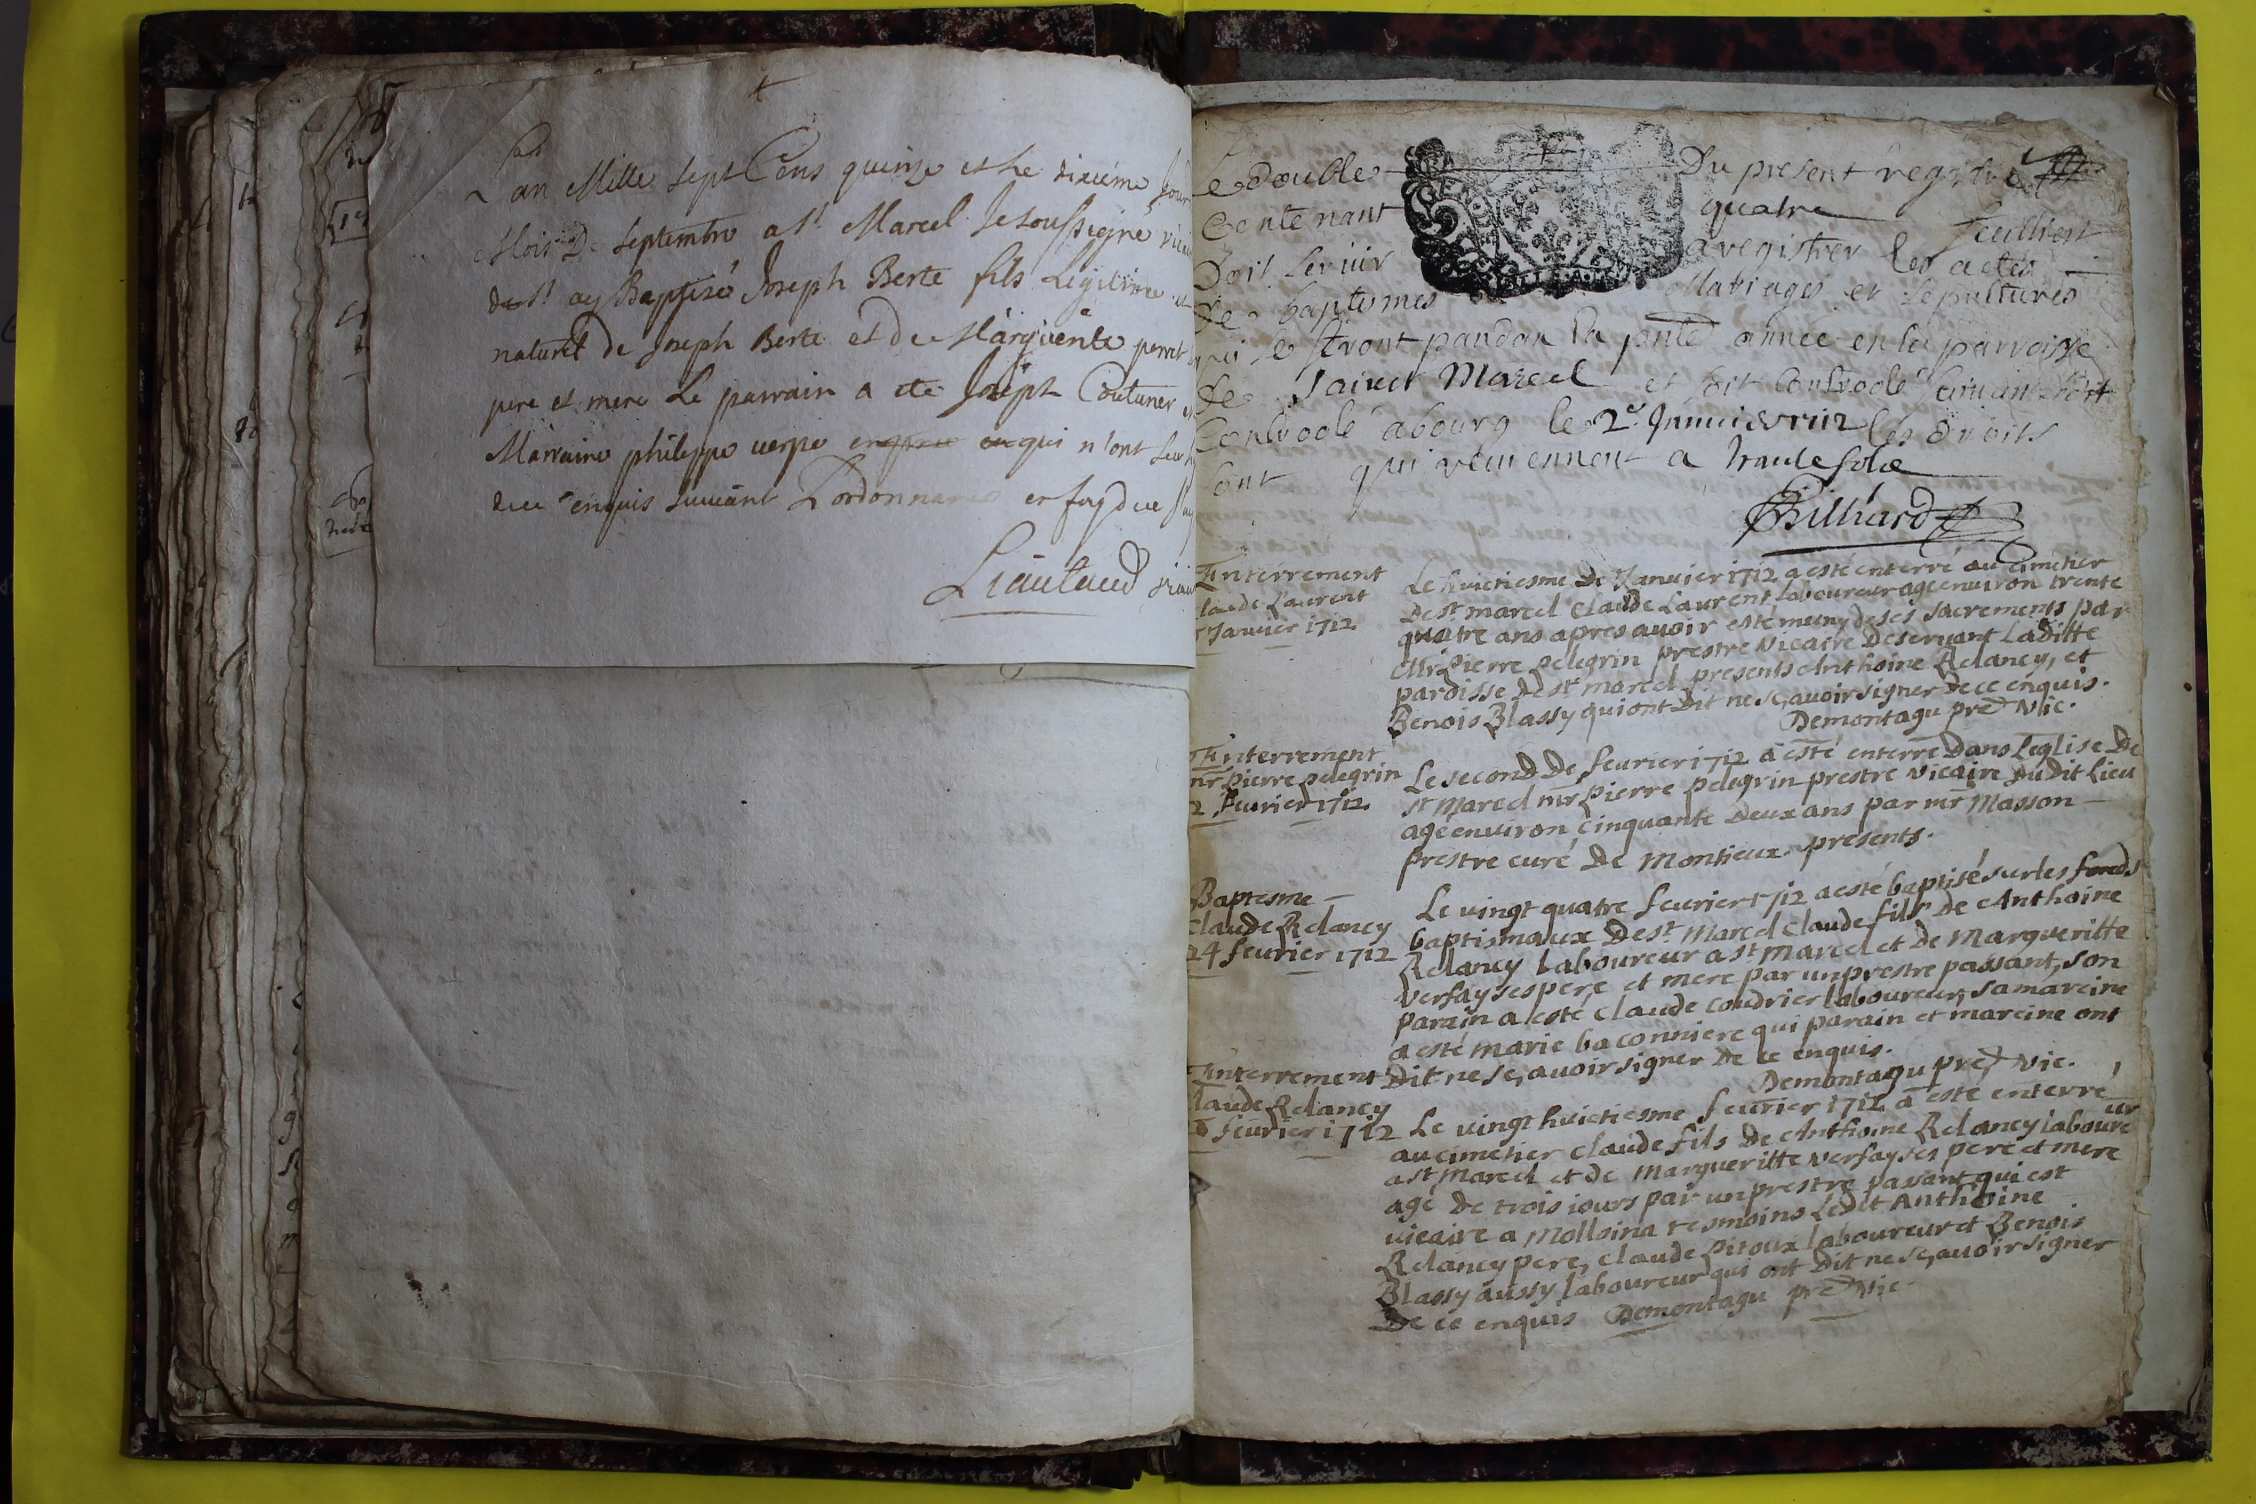 Lan Mille Sept Cens quinze et le dixiéme Jour
Mois De Septembre a St. Marcel Je soussigné
de St. ay Baptisé Joseph Berte fils Legitime et
naturel de Joseph Berte et de Marguerite perret
pere et mere Le parrain a eté Joseph Couturier et
Marraine philippe verpe qui n'ont
de ce enquis suivant L'ordonnance en foy de ce
Liautaud
Le Double Du present registre
Contenant quatre feuilliets
Doit servir a registrer les actes
de baptemes Mariages et sepultures
qui se feront pandan la pnte année en la parroisse
de Saint Marcel et soit Controolé suivant
Controolé a bourg le 2e. Janvier 1712 les droits
sont qui reviennent a
Billiard
Enterrement
Claude Laurent
Janvier 1712
Le huictiesme De Janvier 1712 a esté enterré au cimetier
De st marcel Claude Laurent laboureur agé environ trente
quatre ans apres avoir esté muny de ses sacrements par
Mr Pierre pelegrin prestre vicaire Deservant Laditte
paroisse de st marcel presents Anthoine Relancy, et
Benois Blassy qui ont Dit ne sçavoir signer de ce enquis.
Demontagu pre Vic.
Enterrement
mr Pierre pelegrin
2 Fevrier 1712
Le second De fevrier 1712 a esté enterré Dans l'eglise De
st Marcel mr Pierre pelegrin prestre vicaire Dudit Lieu
agé environ cinquante Deux ans par mr Masson
prestre curé De Montieux presents.
Baptesme
Claude Relancy
24 fevrier 1712
Le vingt quatre fevrier 1712 a esté baptisé sur les fonds
baptismaux De st. Marcel Claude fils de Anthoine
Relancy laboureur a st marcel et de Margueritte
versay ses pere et mere par un prestre passant, son
parain a esté Claude Coudrier laboureur, sa mareine
a esté marie baconniere qui parain et mareine ont
Dit ne sçavoir signer de ce enquis.
Demontagu pre Vic.
Enterrement
Claude Relancy
fevrier 1712
Le vingt huictiesme fevrier 1712 a esté enterré
au cimetier Claude fils De Anthoine Relancy laboureur
a st Marcel et de Margueritte versay ses pere et mere
agé de trois jours par un prestre passant qui est
vicaire a Mollsina tesmoins Ledit Anthoine
Relancy pere, Claude Pitoux laboureur et Benois
Blassy aussy laboureur qui ont Dit ne sçavoir signer
De ce enquis Demontagu pre Vic.